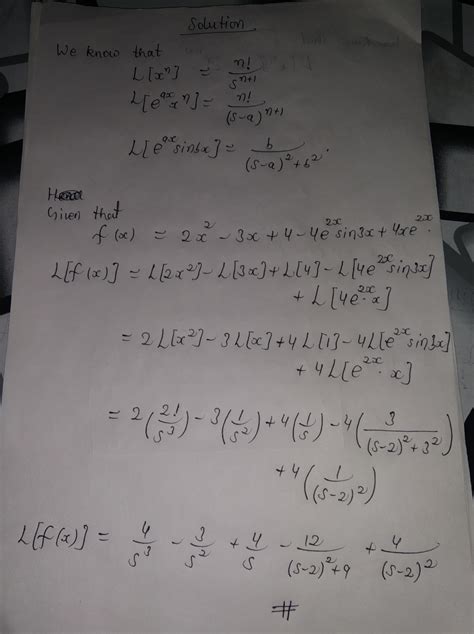 Solution
We know that
L[xⁿ] = n!/sⁿ⁺¹
L[e^{ax} xⁿ] = n!/(s-a)ⁿ⁺¹
L[e^{ax} sinbx] = b/((s-a)² + b²).
Given that
f(x) = 2x² - 3x + 4 - 4e^{2x} sin3x + 4xe^{2x}.
L[f(x)] = L[2x²] - L[3x] + L[4] - L[4e^{2x} sin3x]
+ L[4e^{2x}·x]
= 2L[x²] - 3L[x] + 4L[1] - 4L[e^{2x} sin3x]
+ 4L[e^{2x}·x]
= 2(2!/s³) - 3(1/s²) + 4(1/s) - 4(3/((s-2)² + 3²))
+ 4(1/(s-2)²)
L[f(x)] = 4/s³ - 3/s² + 4/s - 12/((s-2)² + 9) + 4/(s-2)²
#